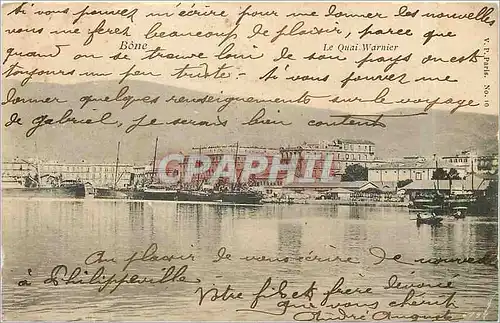 si vous pouvez m'écrire pour me donner des nouvelles
vous me ferez beaucoup de plaisir, parce que
Bône
Le Quai Warnier
V. P. Paris. No. 10
quand on se trouve loin de son pays on est
toujours un peu triste - si vous pouviez me
donner quelques renseignements sur le voyage
de Gabriel, je serais bien content
CPHARTAGE
Au plaisir de vous écrire de nouveau
à Philippeville
Votre frère dévoué
qui vous chérit
André Auguste